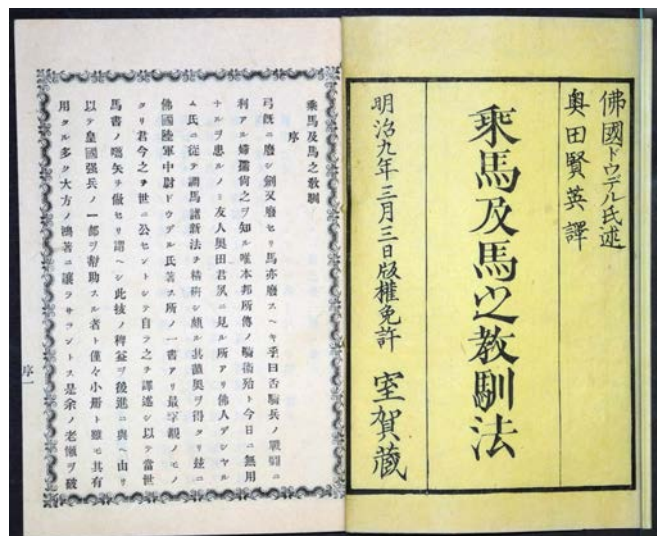 佛國ドウデル氏述
奥田賢英譯
乘馬及馬之教馴法
明治九年三月三日版權免許 室賀蔵
乘馬及馬之教馴
序
弓既ニ廢シ劍又廢セリ馬亦廢スヘキ乎曰否騎兵ノ戰鬪ニ
利アル婦孺尙之ヲ知ル唯本邦所傳ノ騎術殆ト今日ニ無用
ナルヲ患ルノミ友人奥田君夙ニ見ル所アリ佛人デシヤル
ム氏ニ從テ調馬諸新法ヲ精研シ頗ル其蘊奥ヲ得タリ玆ニ
佛國陸軍中尉ドウデル氏著ス所ノ一書アリ最 觀ノモノ
タリ君今之ヲ世ニ公セントシテ自ラ之ヲ譯述シ以テ當世
馬書ノ嚆矢ヲ做セリ謂ヘシ此技ノ稗益ヲ後進ニ與ヘ由リ
以テ皇國强兵ノ一部ヲ幇助スル者ト僅々小册ト雖モ其有
用タル多ク大方ノ鴻著ニ讓ラサラントス是余ノ老懶ヲ破
序一